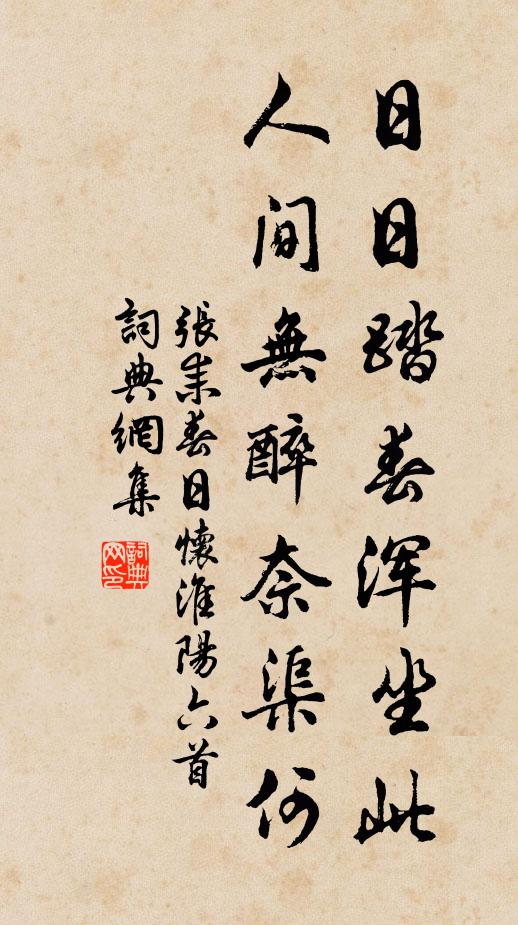 日日踏春浑坐此
人间無醉奈渠何
張耒春日懷淮陽六首
詞典網集
詞典網印